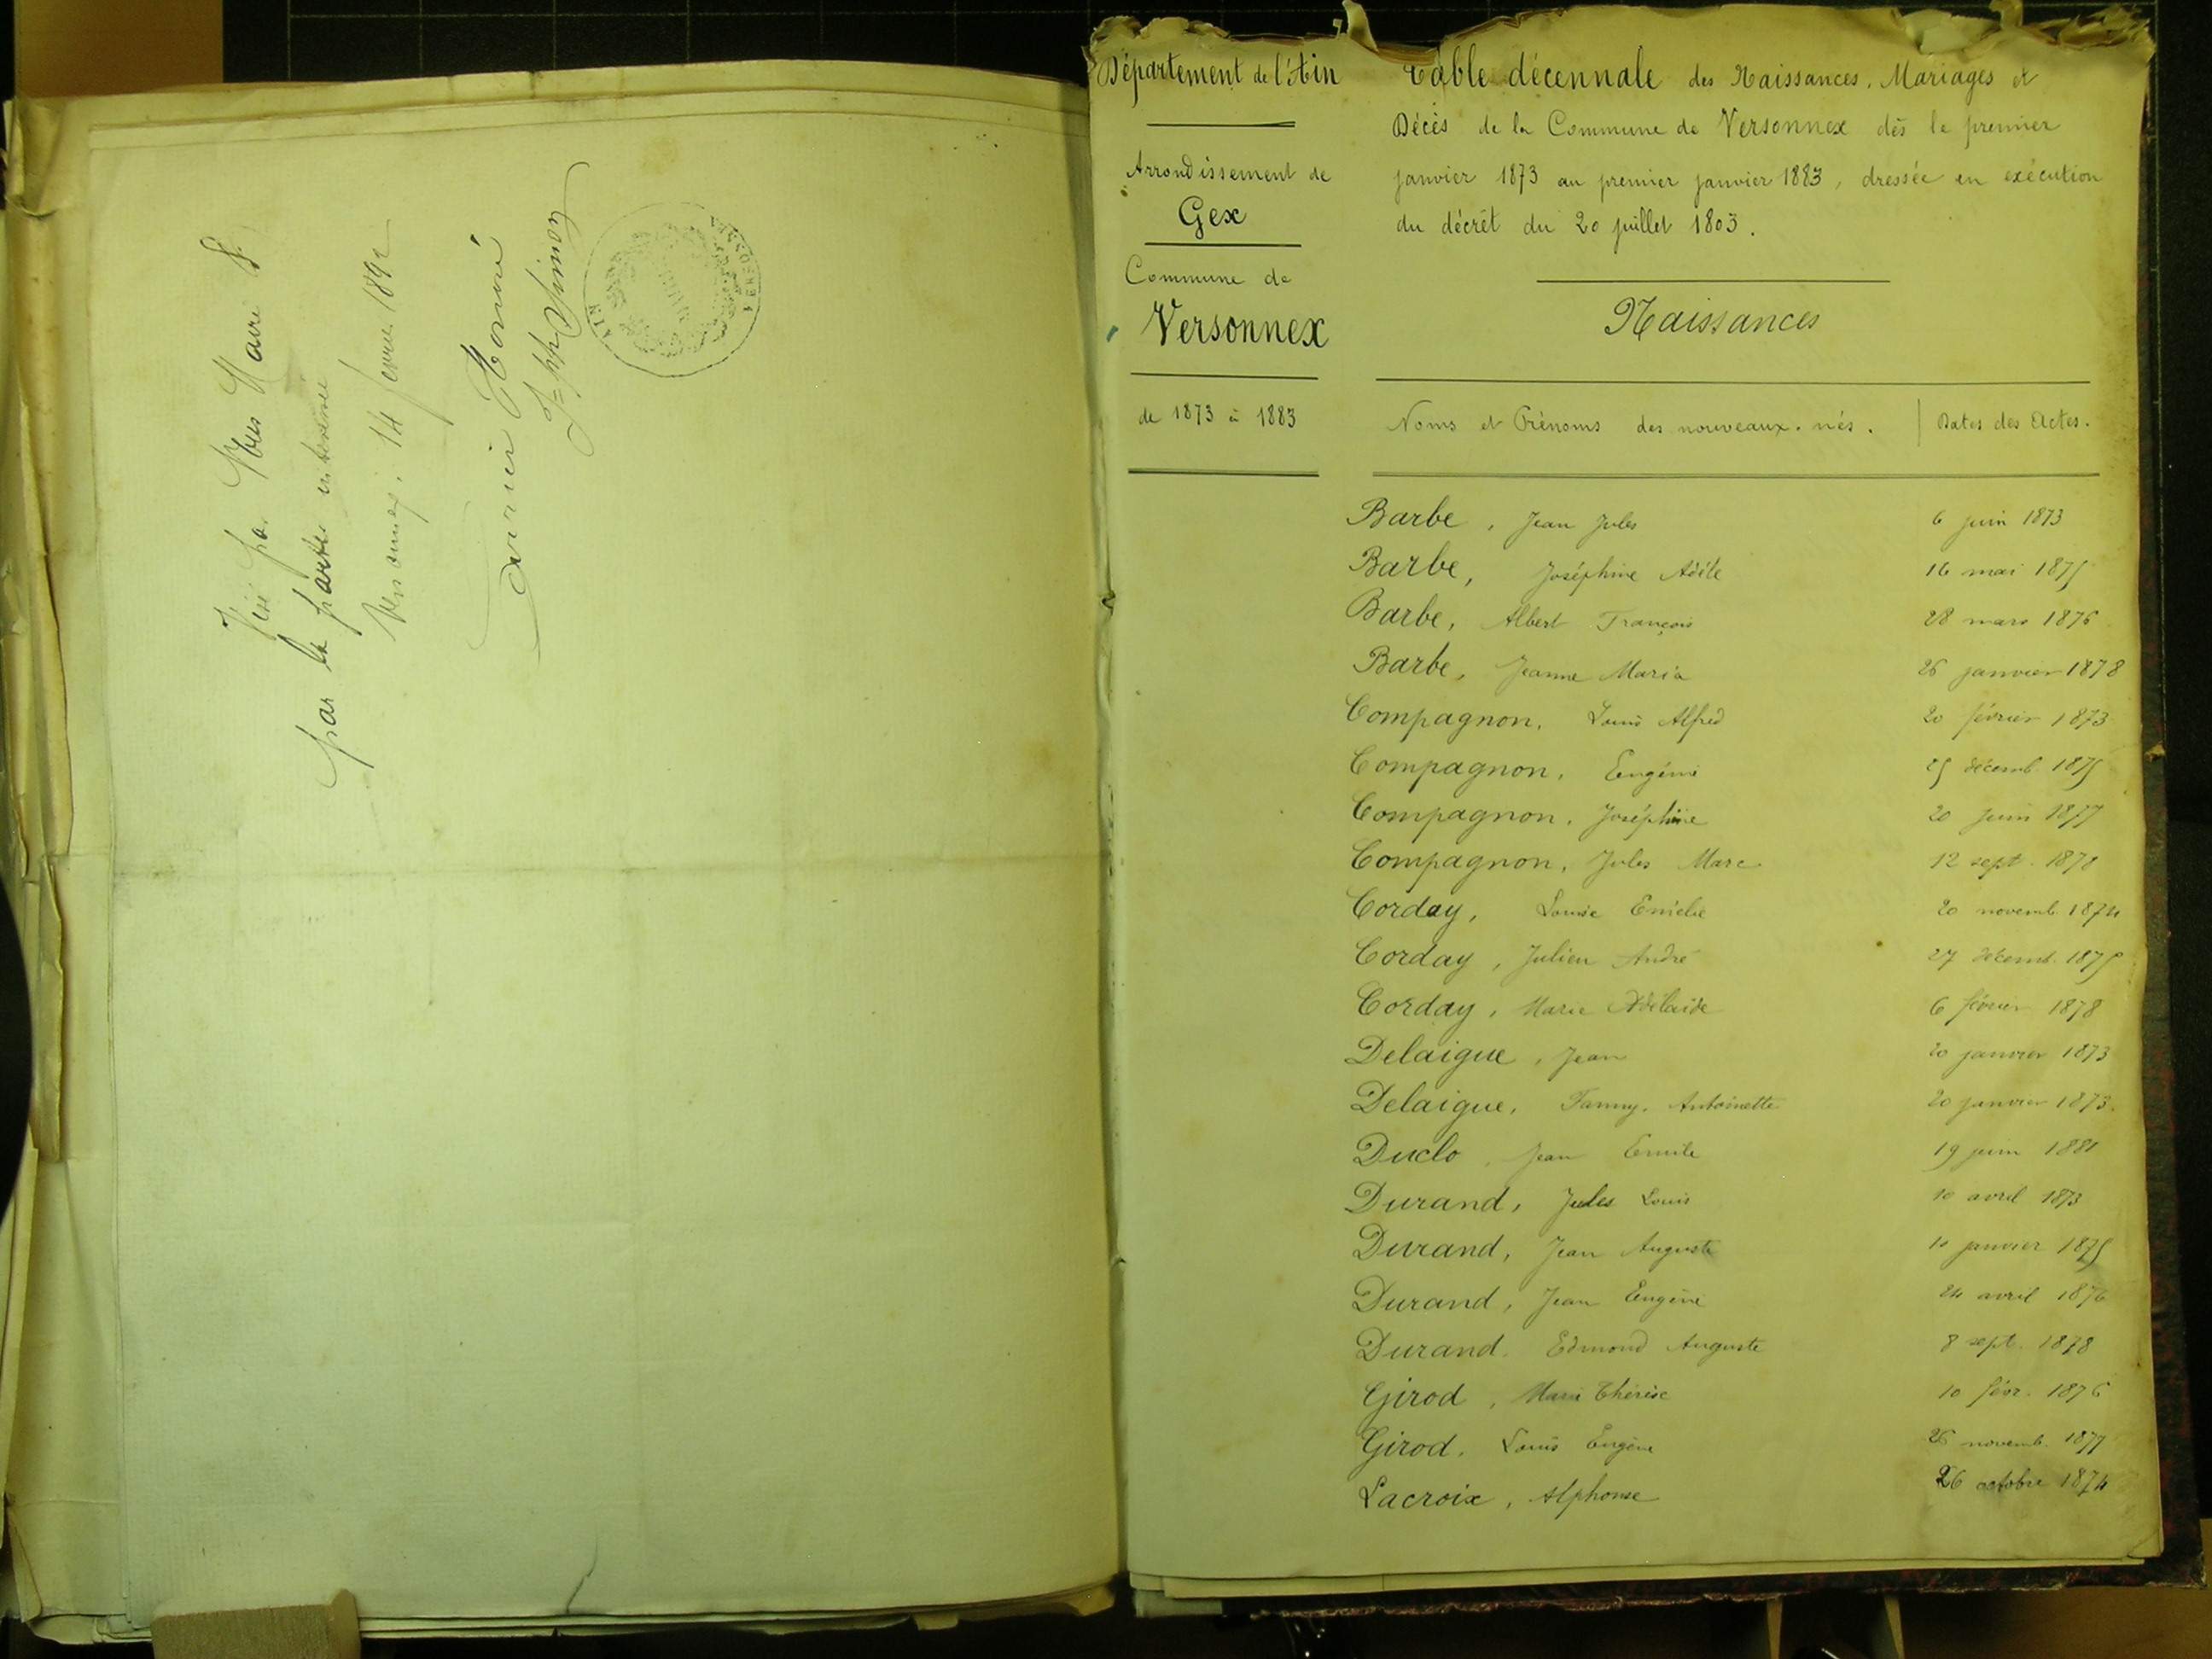 Visé par Nous Maire
par la partie intéressée
Versonnex. 14 février 1892
J=ph Simon
AIN
Département de l'Ain
Arrondissement de
Gex
Commune de
Versonnex
de 1873 à 1883
Table décennale des Naissances, Mariages et
Décès de la Commune de Versonnex dès le premier
janvier 1873 au premier janvier 1883, dressée en exécution
du décrèt du 20 juillet 1803.
Naissances
Noms et Prénoms des nouveaux-nés. Dates des Actes.
Barbe, Jean Jules 6 juin 1873
Barbe, Joséphine Adèle 16 mai 1875
Barbe, Albert François 28 mars 1876
Barbe, Jeanne Maria 26 janvier 1878
Compagnon, Louis Alfred 20 février 1873
Compagnon, Eugénie 25 décemb. 1875
Compagnon, Joséphine 20 juin 1877
Compagnon, Jules Marc 12 sept. 1878
Corday, Louise Emélie 20 novemb. 1874
Corday, Julien André 27 décemb. 1875
Corday, Marie Adélaïde 6 février 1878
Delaigue, Jean 20 janvier 1873
Delaigue, Fanny, Antoinette 20 janvier 1873.
Duclo, Jean Emile 19 juin 1881
Durand, Jules Louis 10 avril 1873
Durand, Jean Auguste 10 janvier 1875
Durand, Jean Eugène 24 avril 1876
Durand. Edmond Auguste 8 sept. 1878
Girod, Marie Thérèse 10 févr. 1876
Girod. Louis Eugène 26 novemb. 1877
Lacroix, Alphonse 26 octobre 1874